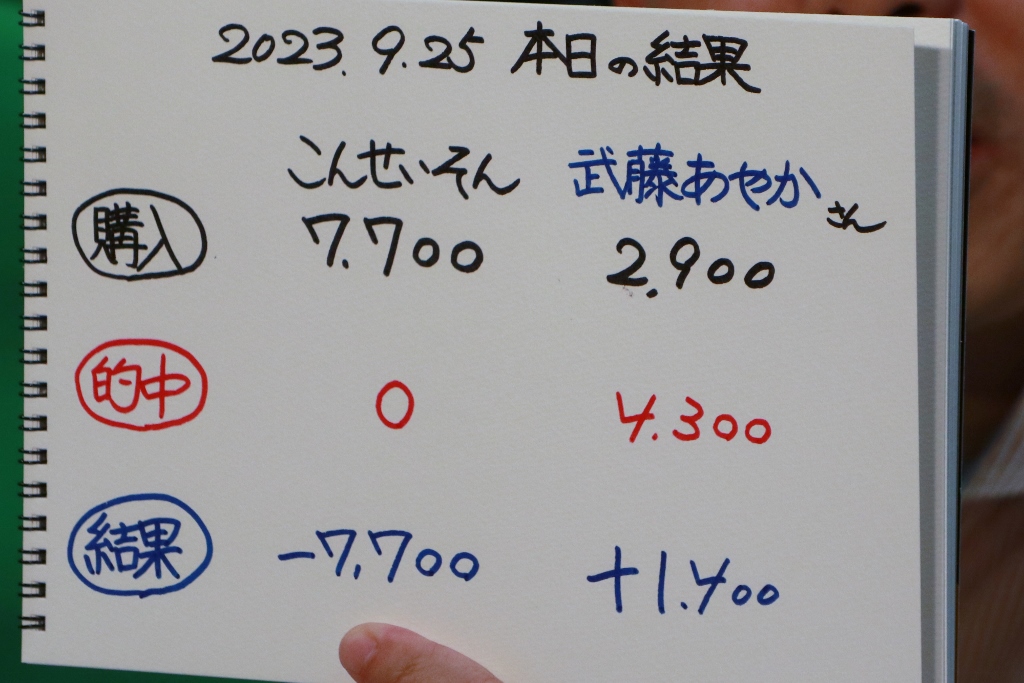 2023.9.25 本日の結果
こんせいそん 武藤あやかさん
購入 7.700 2.900
的中 0 4.300
結果 -7.700 +1.400